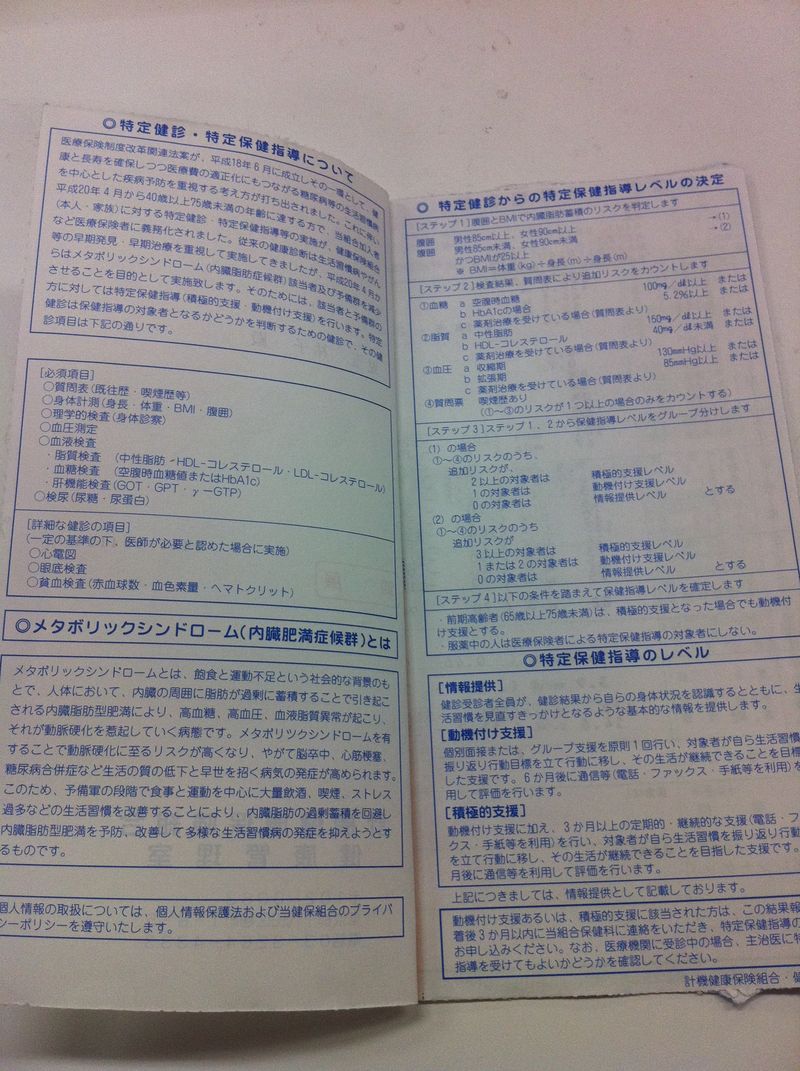 ◎特定健診・特定保健指導について
医療保険制度改革関連法案が、平成18年6月に成立しその一環として、健
康と長寿を確保しつつ医療費の適正化にもつながる糖尿病等の生活習慣病
を中心とした疾病予防を重視する考え方が打ち出されました。これに伴い
平成20年4月から40歳以上75歳未満の年齢に達する方で、当組合加入者
(本人・家族)に対する特定健診・特定保健指導等の実施が、健康保険組合
など医療保険者に義務化されました。従来の健康診断は生活習慣病やがん
等の早期発見・早期治療を重視して実施してきましたが、平成20年4月か
らはメタボリックシンドローム(内臓脂肪症候群)該当者及び予備群を減少
させることを目的として実施致します。そのためには、該当者と予備群の
方に対しては特定保健指導(積極的支援・動機付け支援)を行います。特定
健診は保健指導の対象者となるかどうかを判断するための健診で、その健
診項目は下記の通りです。
[必須項目]
○質問表(既往歴・喫煙歴等)
○身体計測(身長・体重・BMI・腹囲)
○理学的検査(身体診察)
○血圧測定
○血液検査
・脂質検査 (中性脂肪・HDL-コレステロール・LDL-コレステロール)
・血糖検査 (空腹時血糖値またはHbA1c)
・肝機能検査(GOT・GPT・γ-GTP)
○検尿(尿糖・尿蛋白)
[詳細な健診の項目]
(一定の基準の下、医師が必要と認めた場合に実施)
○心電図
○眼底検査
○貧血検査(赤血球数・血色素量・ヘマトクリット)
◎メタボリックシンドローム(内臓肥満症候群)とは
メタボリックシンドロームとは、飽食と運動不足という社会的な背景のも
とで、人体において、内臓の周囲に脂肪が過剰に蓄積することで引き起こ
される内臓脂肪型肥満により、高血糖、高血圧、血液脂質異常が起こり、
それが動脈硬化を惹起していく病態です。メタボリックシンドロームを有
することで動脈硬化に至るリスクが高くなり、やがて脳卒中、心筋梗塞、
糖尿病合併症など生活の質の低下と早世を招く病気の発症が高められます。
このため、予備軍の段階で食事と運動を中心に大量飲酒、喫煙、ストレス
過多などの生活習慣を改善することにより、内臓脂肪の過剰蓄積を回避し
内臓脂肪型肥満を予防、改善して多様な生活習慣病の発症を抑えようとす
るものです。
個人情報の取扱については、個人情報保護法および当健保組合のプライバ
シーポリシーを遵守いたします。
◎ 特定健診からの特定保健指導レベルの決定
[ステップ1]腹囲とBMIで内臓脂肪蓄積のリスクを判定します
腹囲 男性85cm以上、女性90cm以上 →(1)
腹囲 男性85cm未満、女性90cm未満 →(2)
かつBMIが25以上
※ BMI=体重(kg)÷身長(m)÷身長(m)
[ステップ2]検査結果、質問表により追加リスクをカウントします
①血糖 a 空腹時血糖 100mg/dl以上 または
b HbA1cの場合 5.2%以上 または
c 薬剤治療を受けている場合(質問表より)
②脂質 a 中性脂肪 150mg/dl以上 または
b HDL-コレステロール 40mg/dl未満 または
c 薬剤治療を受けている場合(質問表より)
③血圧 a 収縮期 130mmHg以上 または
b 拡張期 85mmHg以上 または
c 薬剤治療を受けている場合(質問表より)
④質問票 喫煙歴あり
(①~③のリスクが1つ以上の場合のみをカウントする)
[ステップ3]ステップ1、2から保健指導レベルをグループ分けします
(1) の場合
①~④のリスクのうち、
追加リスクが、
2以上の対象者は 積極的支援レベル
1の対象者は 動機付け支援レベル
0の対象者は 情報提供レベル とする
(2) の場合
①~④のリスクのうち
追加リスクが
3以上の対象者は 積極的支援レベル
1または2の対象者は 動機付け支援レベル
0の対象者は 情報提供レベル とする
[ステップ4]以下の条件を踏まえて保健指導レベルを確定します
・前期高齢者(65歳以上75歳未満)は、積極的支援となった場合でも動機付
け支援とする。
・服薬中の人は医療保険者による特定保健指導の対象者にしない。
◎特定保健指導のレベル
[情報提供]
健診受診者全員が、健診結果から自らの身体状況を認識するとともに、生
活習慣を見直すきっかけとなるような基本的な情報を提供します。
[動機付け支援]
個別面接または、グループ支援を原則1回行い、対象者が自ら生活習慣
振り返り行動目標を立て行動に移し、その生活が継続できることを目標
した支援です。6か月後に通信等(電話・ファックス・手紙等を利用)を
用して評価を行います。
[積極的支援]
動機付け支援に加え、3か月以上の定期的・継続的な支援(電話・フ
クス・手紙等を利用)を行い、対象者が自ら生活習慣を振り返り行動
を立て行動に移し、その生活が継続できることを目指した支援です。
月後に通信等を利用して評価を行います。
上記につきましては、情報提供として記載しております。
動機付け支援あるいは、積極的支援に該当された方は、この結果報
着後3か月以内に当組合保健科に連絡をいただき、特定保健指導の
お申し込みください。なお、医療機関に受診中の場合、主治医に特
指導を受けてもよいかどうかを確認してください。
計機健康保険組合・健